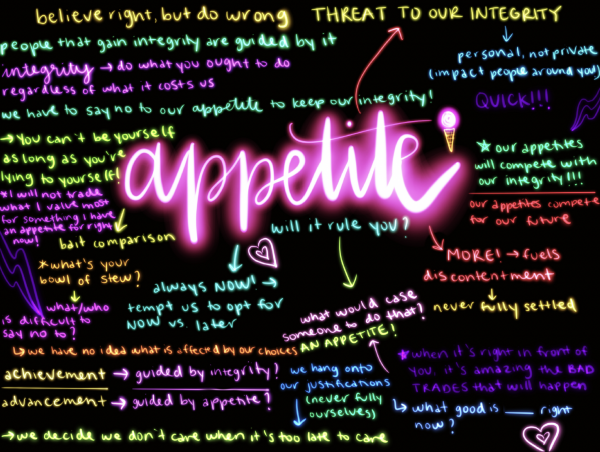 believe right, but do wrong
THREAT TO OUR INTEGRITY
people that gain integrity are guided by it
personal, not private
(impact people around you)
integrity → do what you ought to do
regardless of what it costs us
QUICK!!!
we have to say no to our appetite to keep our integrity!
→ You can't be yourself
as long as you're
lying to yourself!
appetite
★ our appetites
will compete with
our integrity!!!
*I will not trade
what I value most
for something I have
an appetite for right
now!
our appetites compete
for our future
will it rule you?
bait comparison
MORE! → fuels
discontentment
never fully settled
*what's your
bowl of stew?
always NOW! →
tempt us to opt for
NOW vs. later
what/who
is difficult to
say no to?
what would case
someone to do that?
AN APPETITE!
↳ we have no idea what is affected by our choices
achievement → guided by integrity?
advancement → guided by appetite?
we hang onto
our justifications
(never fully
ourselves)
★ when it's right in front of
you, it's amazing the BAD
TRADES that will happen
↳ what good is ___ right
now?
→ we decide we don't care when it's too late to care